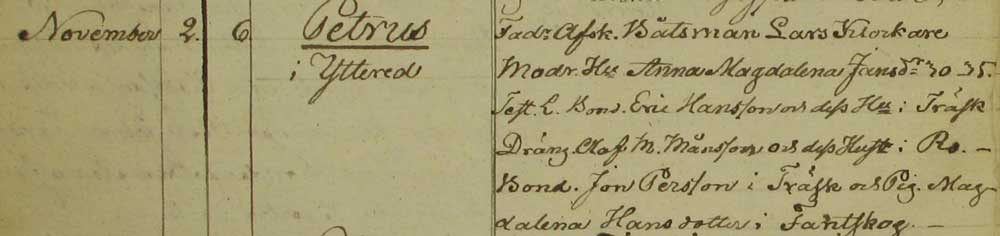 November 2. 6 Petrus Fadr Afsk. Båtsman Lars Klockare
i Yttered Modr. Hs Anna Magdalena Jansdr 30-35.
Test. L. Bond. Eric Hansson och dess Hs i Träsk
Dräng. Olof M. Månsson och dess Hust i Ro. -
Bond. Jon Persson i Träsk och Pig. Mag-
dalena Hansdotter i Fantskog. -